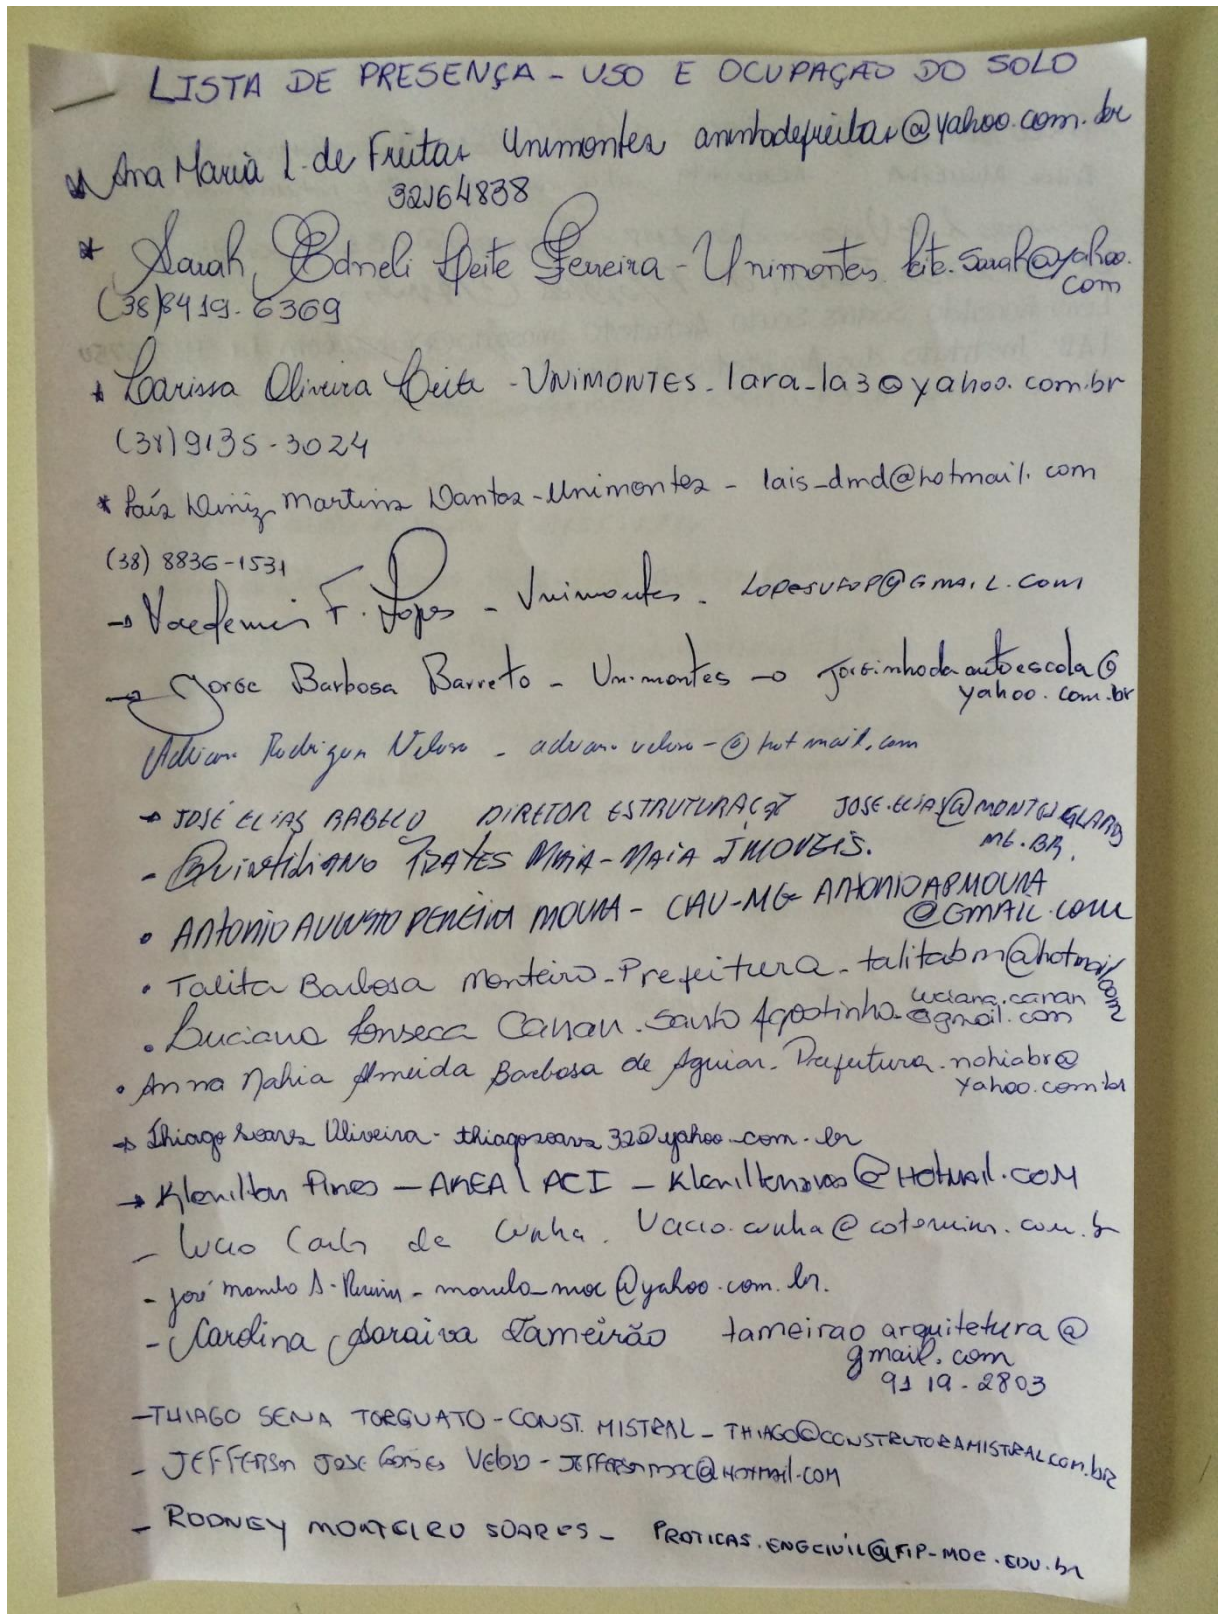 LISTA DE PRESENÇA - USO E OCUPAÇÃO DO SOLO
Ana Maria L. de Freitas Unimontes anintadefreitas@yahoo.com.br
32164838
* Sarah Edneli Leite Ferreira - Unimontes leite.sarah@yahoo.
com
(38)8419-6369
* Larissa Oliveira Leite - UNIMONTES - lara_la3@yahoo.com.br
(38)9135-3024
* Laís Diniz Martins Dantas - Unimontes - lais_dmd@hotmail.com
(38) 8836-1531
→ F. Lopes - Unimontes - LOPESUFOP@GMAIL.COM
→ Jorge Barbosa Barreto - Unimontes → jorginhodaautoescola@
yahoo.com.br
Rodrigues Veloso - @hotmail.com
→ JOSÉ ELIAS RABELO DIRETOR ESTRUTURAÇÃO JOSE.ELIAS@MONTESCLAROS
MG.BR.
- QUINTILIANO PRATES MAIA - MAIA IMOVEIS.
• ANTONIO AUGUSTO PEREIRA MOURA - CAU-MG - ANTONIOAPMOURA
@GMAIL.COM
• Talita Barbosa Monteiro - Prefeitura - talitabm@hotmail.com
• Luciana Fonseca Canan - Santo Agostinho - luciana.canan
@gmail.com
• Anna Nahia Almeida Barbosa de Aguiar - Prefeitura - nahiabr@
yahoo.com.br
→ Thiago Soares Oliveira - thiagosoares32@yahoo.com.br
→ Klenilton Pires - AREA \ ACI - @HOTMAIL.COM
- Lucio Carlos de Cunha.
- José S. Pereira - marcelo_moc@yahoo.com.br.
- Carolina Saraiva Tameirão tameirao arquitetura@
gmail.com
9119-2803
- THIAGO SENA TORQUATO - CONST. MISTRAL - THIAGO@CONSTRUTORAMISTRAL.COM.BR
- JEFFERSON JOSE GOMES VELOSO - JEFFERSONMOC@HOTMAIL.COM
- RODNEY MONTEIRO SOARES - PRATICAS.ENGCIVIL@FIP-MOC.EDU.br